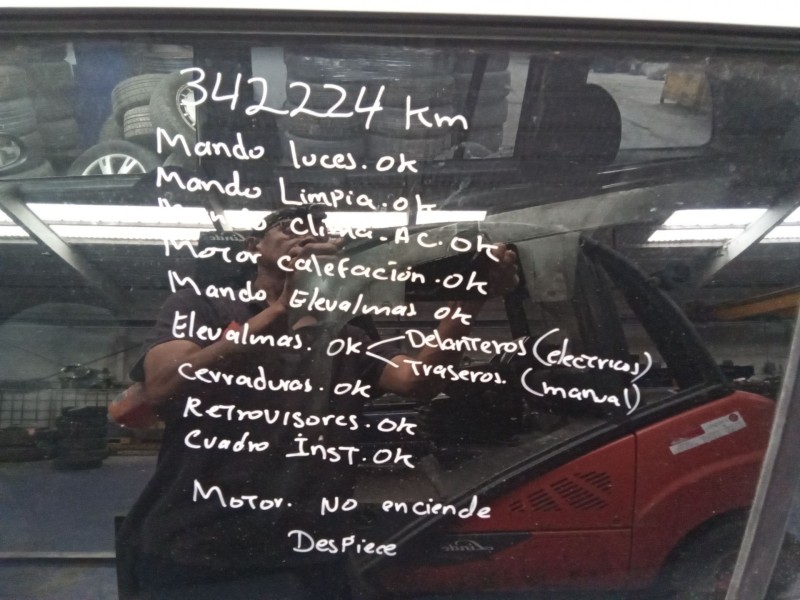 342224 Km
Mando luces. ok
Mando Limpia. ok
Mando Clima. AC. ok
Motor calefación. ok
Mando Elevalmas ok
Elevalmas. ok < Delanteros (electricos)
Traseros. (manual)
cerraduras. ok
Retrovisores. ok
Cuadro Inst. ok
Motor. No enciende
Despiece
Linde
Linde